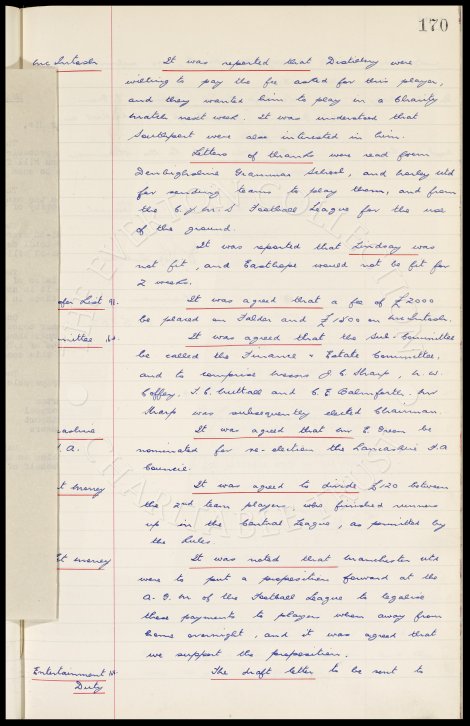 170
McIntosh
It was reported that Distillery were
willing to pay the fee asked for this player,
and they wanted him to play in a Charity
match next week. It was understood that
Southport were also interested in him.
Letters of thanks were read from
Grammar School, and Marley Utd
for sending teams to play them, and from
the C.J.M.S Football League for the use
of the ground.
It was reported that Lindsay was
not fit, and Easthope would not be fit for
2 weeks.
fer List
It was agreed that a fee of £2000
be placed on Falder and £1500 on McIntosh.
mmittee
It was agreed that the Sub-Committee
be called the Finance & Estate Committee,
and to comprise Messrs J. C. Sharp, N. W.
Coffey, T. C. Nuttall and C. E. Balmforth. Mr
Sharp was subsequently elected Chairman.
ashire
It was agreed that Mr E. Green be
F.A.
nominated for re-election the Lancashire F.A
Council.
t money
It was agreed to divide £20 between
the 2nd team players who finished runners
up in the Central League, as permitted by
the Rules.
t money
It was noted that Manchester Utd
were to put a proposition forward at the
A.G.M of the Football League to legalise
these payments to players when away from
home overnight, and it was agreed that
we support the proposition.
Entertainment
Duty
The draft letter to be sent to
THE EVERTON COLLECTION
CHARITABLE TRUST